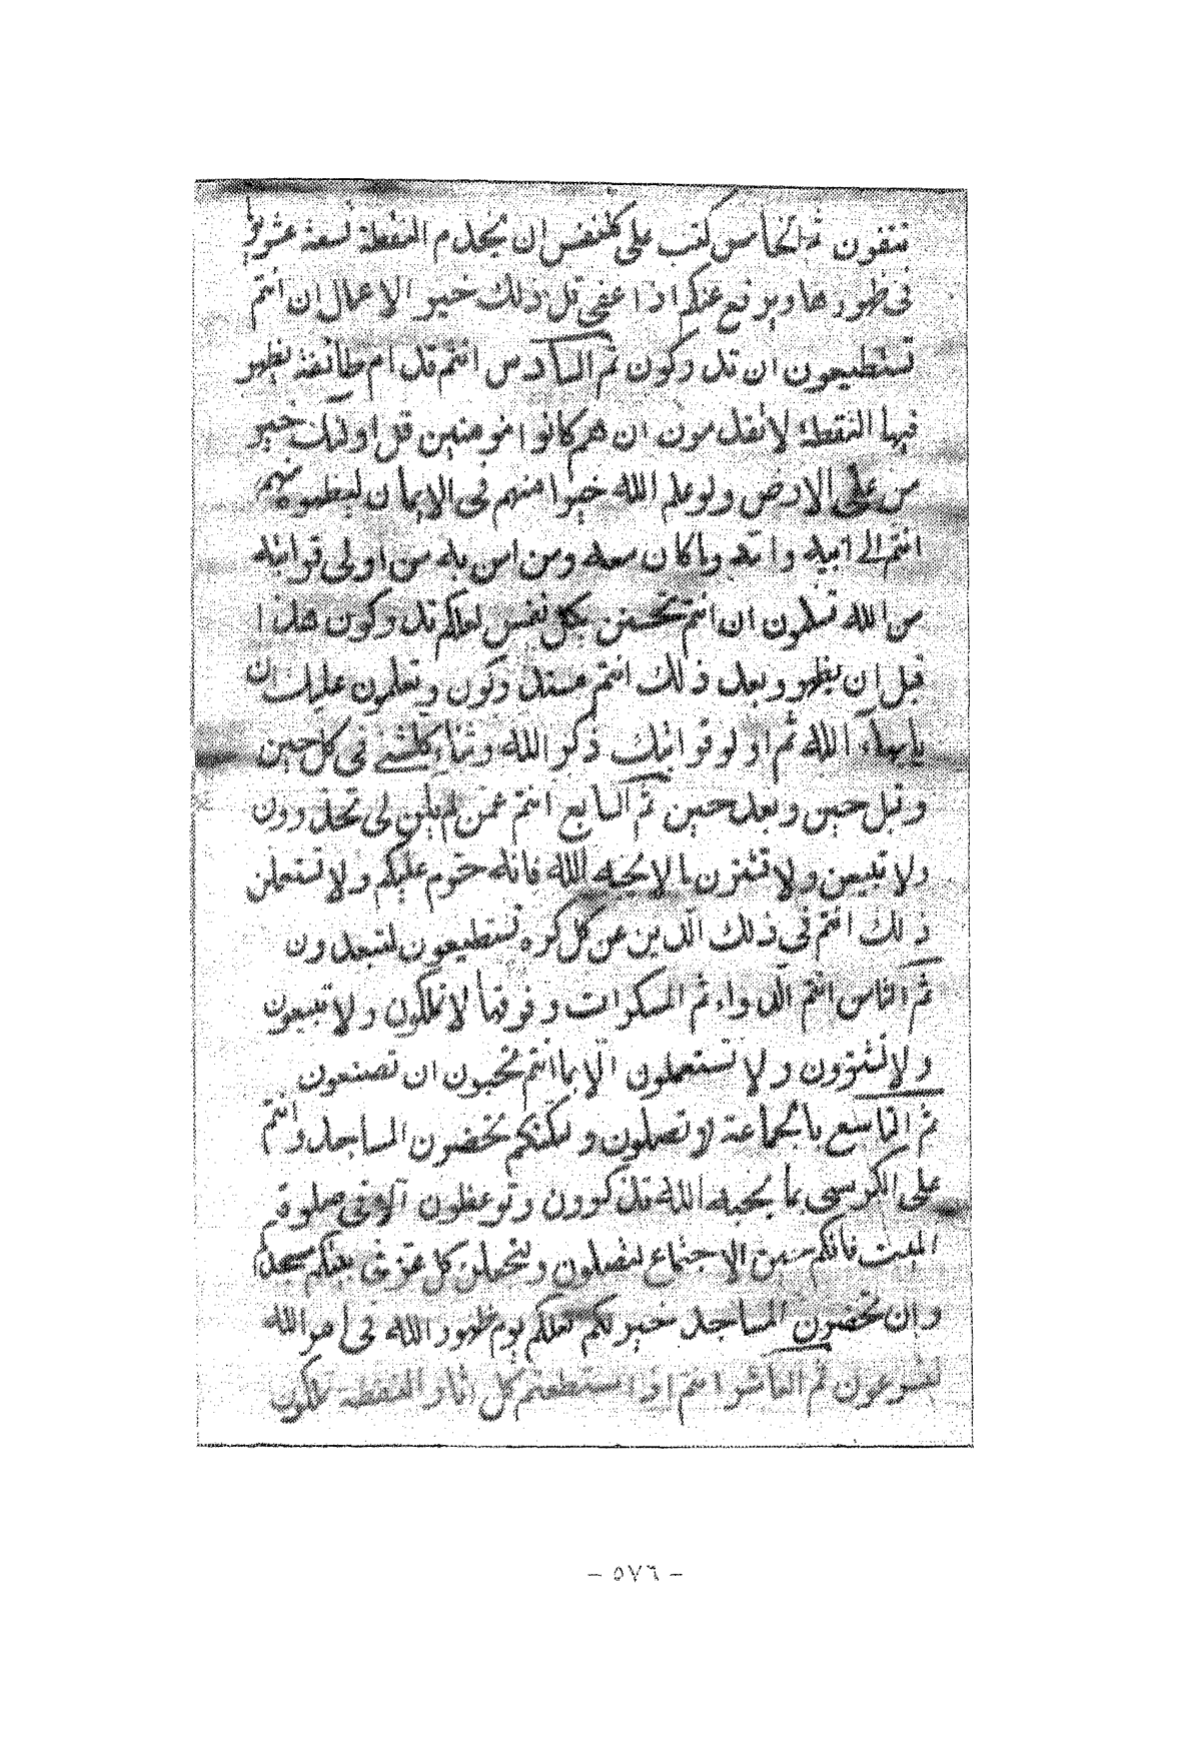 تنفقون ثم الخامس كتب على كلنفس ان يخدم النقطة تسعة عشر يوما
فى ظهورها ويرفع عنكم اذا عفى قل ذلك خير الاعمال ان انتم
تستطيعون ان تدركون ثم السادس انتم قدام طائفة يظهر
فيها النقطة لا تقدمون ان هم كانوا مومنين قل اولئك خير
من على الارض ولو علم الله خيرا منهم فى الايمان ليظهره منهم
انتم الى ابيه وامه وما كان معه ومن امن به من اولى قرابته
من الله تسلمون ان انتم تحسنن بكل نفس لعلكم تدركون هذا
قبل ان يظهر وبعد ذلك انتم ستدركون وتعلمون عليك ان
يا بهاء الله ثم اولو قرابتك ذكر الله وثناء كلشئ فى كل حين
وقبل حين وبعد حين ثم السابع انتم عمن لم يلن لى تحذرون
ولا تبيعن ولا تشترن ما لا يحبه الله فانه حرم عليكم ولا تستعملن
ذلك انتم في ذلك الدين عن كل كره تستطيعون لتبعدون
ثم الثامن انتم الدواء ثم المسكرات وفوقها لا تملكون ولا تبيعون
ولا تشترون ولا تستعملون الا بما انتم تحبون ان تصنعون
ثم التاسع بالجماعة لا تصلون ولكنكم تحضرون المساجد وانتم
على الكرسى بما يحبه الله تذكرون وتوعظون الا فى صلوة
الميت فانكم حين الاجتماع لتصلون ولتجعلن كل عرش بعثكم مسجدا
وان تحضرون المساجد خير لكم لعلكم يوم ظهور الله فى امر الله
لتسرعون ثم العاشر انتم اذا استطعتم كل اثار النقطة تملكون
- ٥٧٦ -